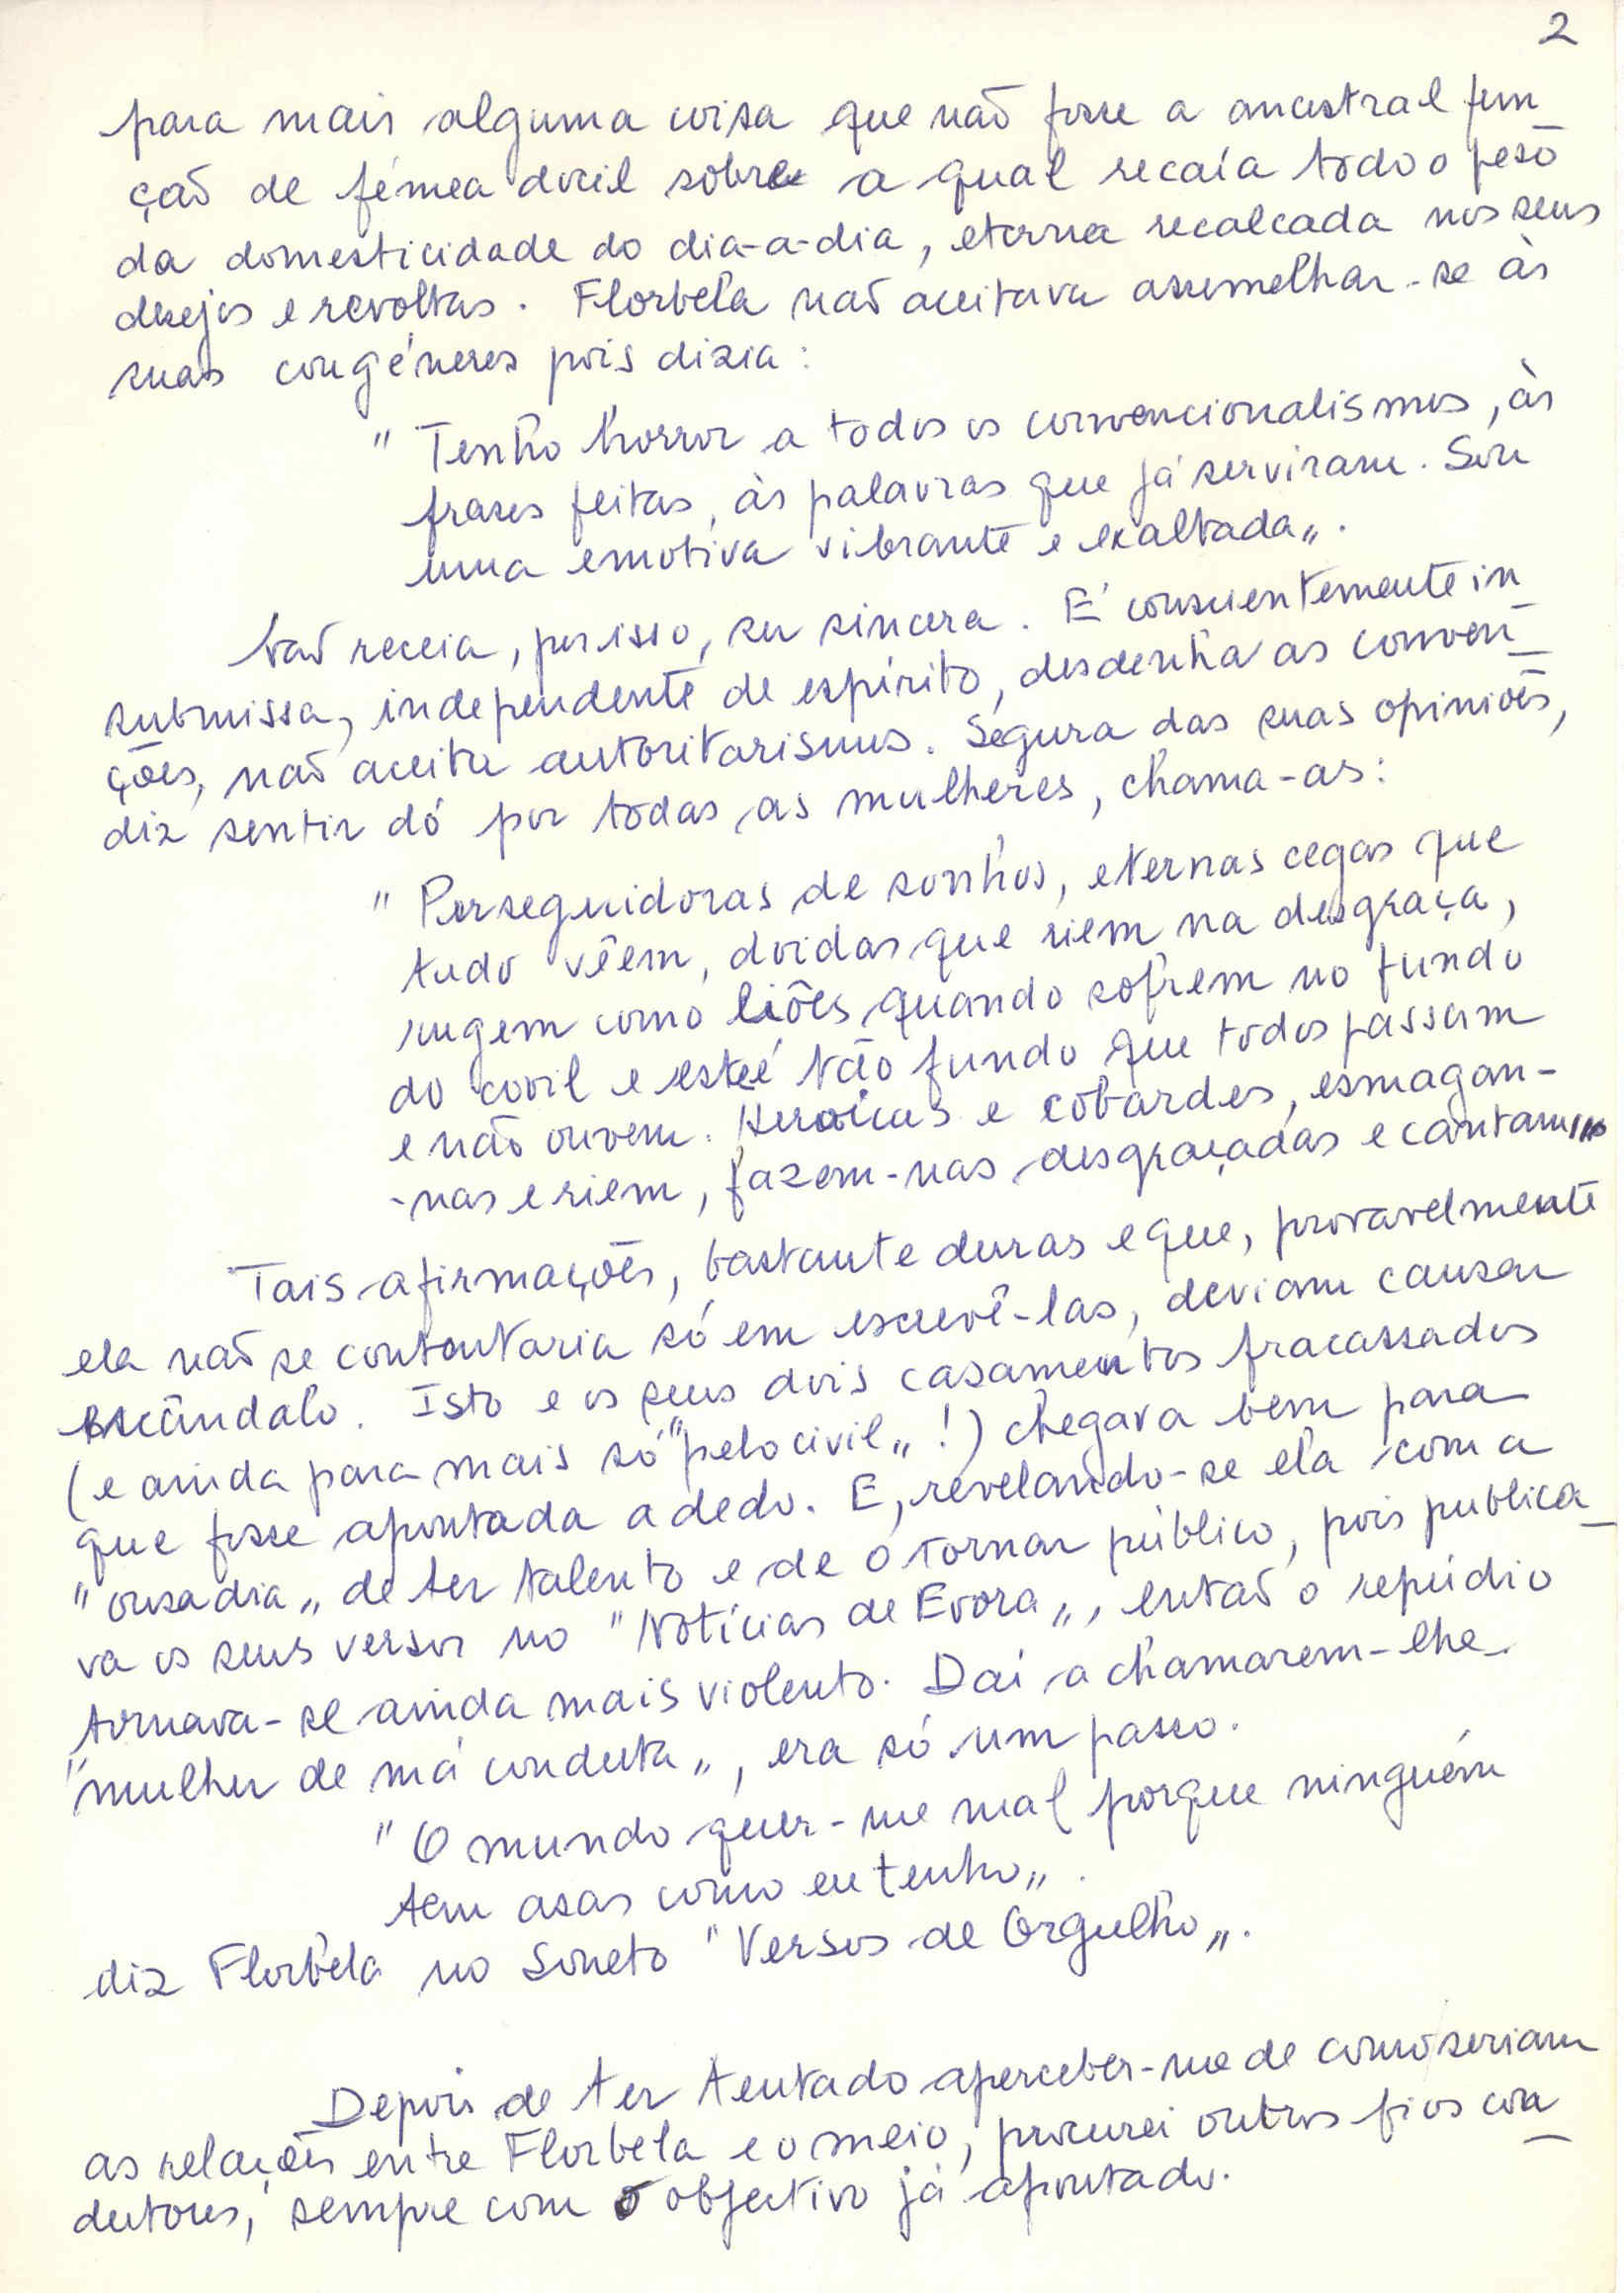 2
para mais alguma coisa que não fosse a ancestral fun
ção de fémea dócil sobre a qual recaía todo o peso
da domesticidade do dia-a-dia, eterna recalcada nos seus
desejos e revoltas. Florbela não aceitava assemelhar-se às
suas congéneres pois dizia:
" Tenho horror a todos os convencionalismos, às
frases feitas, às palavras que já serviram. Sou
uma emotiva vibrante e exaltada".
Não receia, por isso, ser sincera. É conscientemente in
submissa, independente de espírito, desdenha as conven
ções, não aceita autoritarismos. Segura das suas opiniões,
diz sentir dó por todas as mulheres, chama-as:
" Perseguidoras de sonhos, eternas cegas que
tudo vêem, doidas que riem na desgraça,
rugem como liões quando sofrem no fundo
do covil e este é tão fundo que todos passam
e não ouvem. Heroicas e cobardes, esmagam-
-nas e riem, fazem-nas desgraçadas e cantam"
Tais afirmações, bastante duras e que, provavelmente
ela não se contentaria só em escrevê-las, deviam causar
escândalo. Isto e os seus dois casamentos fracassados
(e ainda para mais só "pelo civil"!) chegava bem para
que fosse apontada a dedo. E, revelando-se ela com a
"ousadia" de ter talento e de o tornar público, pois publica
va os seus versos no "Notícias de Evora", então o repúdio
tornava-se ainda mais violento. Daí a chamarem-lhe
"mulher de má conduta", era só um passo.
"O mundo quer-me mal porque ninguém
tem asas como eu tenho".
diz Florbela no Soneto "Versos de Orgulho".
Depois de ter tentado aperceber-me de como seriam
as relações entre Florbela e o meio, procurei outros fios con
dutores, sempre com o objectivo já apontado.